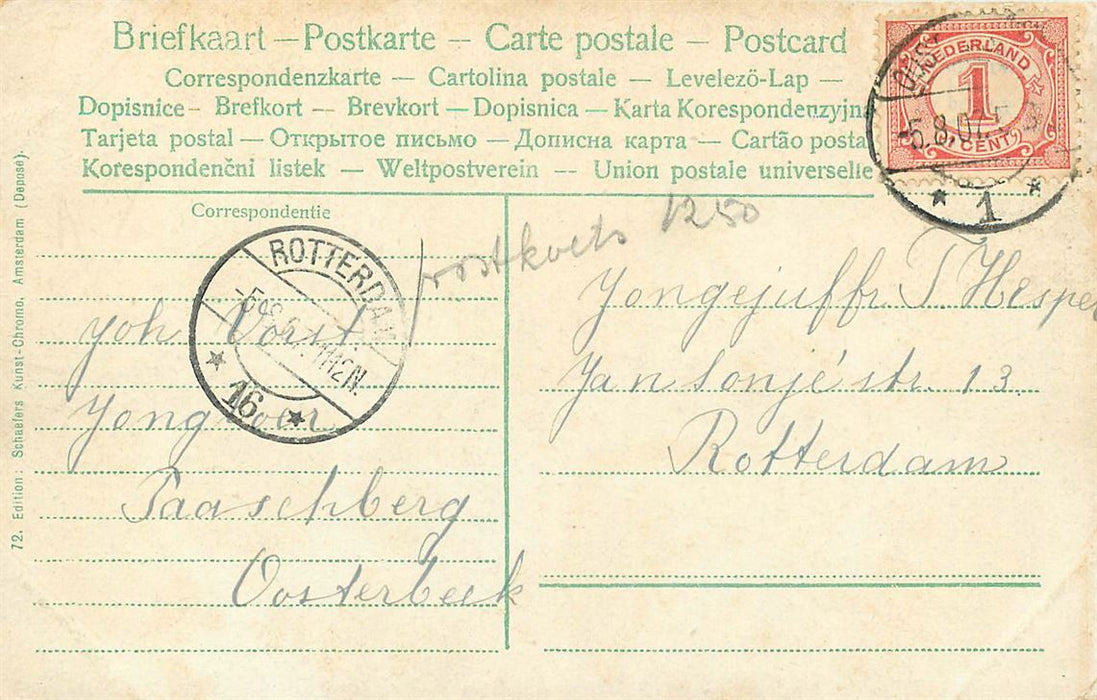 Briefkaart — Postkarte — Carte postale — Postcard
Correspondenzkarte — Cartolina postale — Levelező-Lap —
Dopisnice - Brefkort — Brevkort — Dopisnica — Karta Korespondenzyjna
Tarjeta postal — Открытое письмо — Дописна карта — Cartão postal
Korespondenční listek — Weltpostverein -- Union postale universelle
NEDERLAND
1
CENT
5.8.07
1
Correspondentie
postkoets 1250
ROTTERDAM
16
Joh Vorst
Paaschberg
Oosterbeek
Jongejuffr T Hesper
Jan Sonjéstr. 13
Rotterdam
72. Edition: Schaefers Kunst-Chromo, Amsterdam (Deposé).